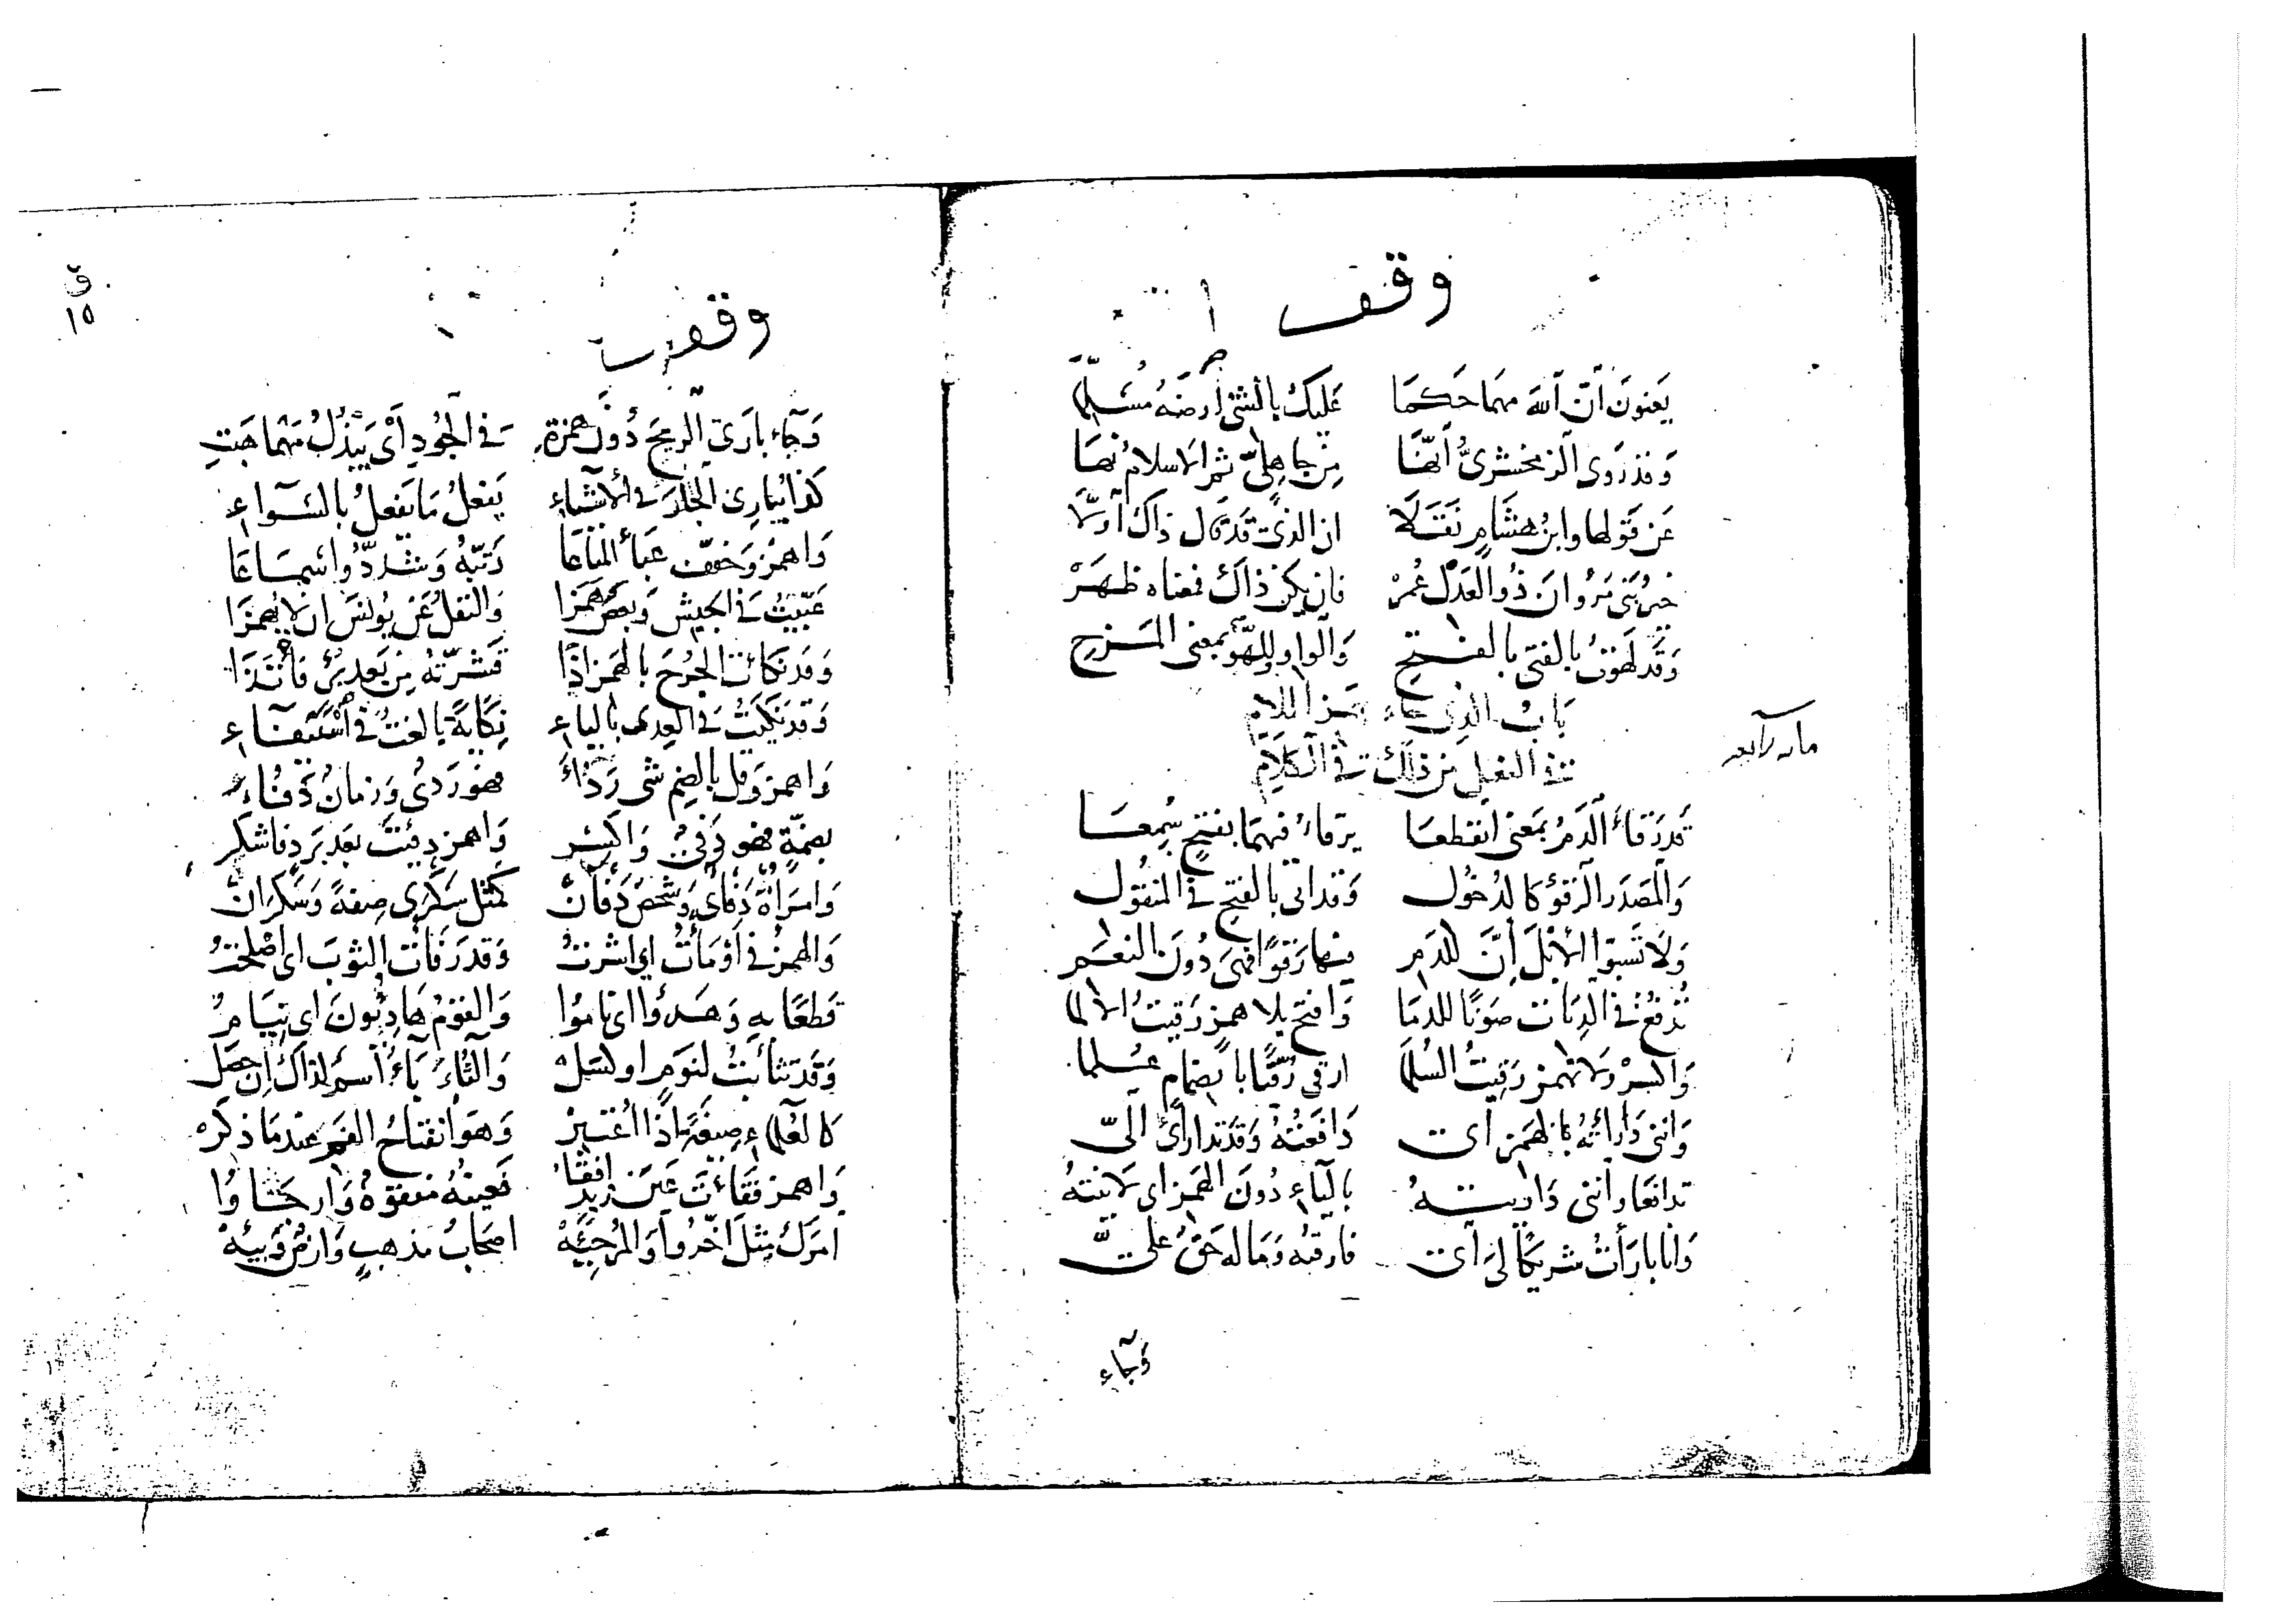 وقف
يَعنونَ أنّ اللهَ مهمَا حَكمَا عَليكَ بالشئ ارضَهُ مُسَلِّما
وَقد رَوى الزمخشرىُّ أنّها مِن جاهِليّ ثم الاسلامُ نهَا
عَن قَولها وابنُ هشَامٍ نَقَلَا ان الذى قَد قال ذاكَ أوّلا
خيرُ بَنى مَروانَ ذُو العَدْل عُمرْ فان يكن ذاكَ فمعناه ظهَرْ
وَقَد لَهَوتُ بالفتى بالفتحِ وَالواو وللهّو بمعنى المَزحِ
بَابُ الذى جاء بهمز اللام
فى الفعل من ذلك فى الكلامِ
قد رَقأَ الدَمُ بمَعنى انقطعَا يرقاءُ فيهمَا بفتحٍ سُمِعَا
وَالمَصدَر الرَقؤ كالدُخُول وَقد اتى بالفتحِ فى المنقُول
وَلَا تَسُبّوا الابْلَ إنَّ للدمِ فيها رَقوًا فهىَ دُونَ النعَم
تُدفعُ فى الدِيَات صَونًا للدمَا وَافتح بلا همزٍ رَقيتُ الالما
وَاكسرْ وَلا تهمز رَقِيتُ السُلَّما ارقى رُقيًّا بانضمامٍ عُلما
وَاننى دَارأتُهُ بالهَمزِ اى دَافعَتُهُ وَقد تدارأى الىّ
تدافعَا واننى دَاريتهُ بالياءِ دُونَ الهَمزِ اى لَاينتهُ
وَانا بارَأتُ شريكًا لىَ اى فارقتهُ وَمَا له حَقّ علىّ
وَجاءِ
باب رابع
وقف
ق
١٥
وَجَاءَ بارَى الريحَ دُونَ همزةِ فى الجُودِ أىْ يَبذُلُ مَهما هَبّتِ
كذا يُبارى الجلدَ فى الأشياءِ يَفعلُ مَا يَفعلُ بالسَوَاءِ
وَاهمز وَخفف عَبأَ المتاعَا رَتّبَهُ وَشدّدُوا سَمَاعَا
عَبّيتُ فى الجيش وَبعضٌ هَمزا وَالنقلُ عَن يُونسَ ان لا يُهمزا
وَقد نكأتُ الجُرحَ بالهَمز اذا قشرّتهُ مِن بَعد بُرْءٍ فانتذا
وَقد نكَيتُ فى العدى بالياءِ نِكَايَةً بالغتُ فى استيفاءِ
وَاهمز وَقل بالضم شى رَدُأَ فهو رَدئ وَزمانٌ دَفُأَ
بضمّةٍ فهو دَفئ وَاكسر وَاهمز دَفِئت بَعد بَردٍ فاشكر
وَامرَأة دَفأَى وَشخصٌ دَفآنْ كمثل سَكرَى صِفةً وَسَكرَانْ
وَالهمز فى أومَأتُ اى اشرتُ وَقد رَفأت الثوبَ اى اصلحتُ
قطعًا به وَهَدؤُا اى نامُوا وَالقومُ هَادِئونَ اى نِيَامُ
وَقَد تثاءَبتُ لنَومٍ او لكسَلْ وَالثُأَباءُ اسم لذاكَ اِن حصَل
كالعُلماءِ صِيغةً اذا اعتُبرْ وَهو انفتاحُ الفم عندمَا ذكرْ
وَاهمز فقَأتَ عَينَ زيدٍ افقأُ فعَينُهُ مَفقوّةٌ وَارجَئاوُا
امرَكَ مثلَ أخّرُوا وَالمُرجِئَهْ اصحَابُ مذهبٍ وَارضٌ وَبِئهْ